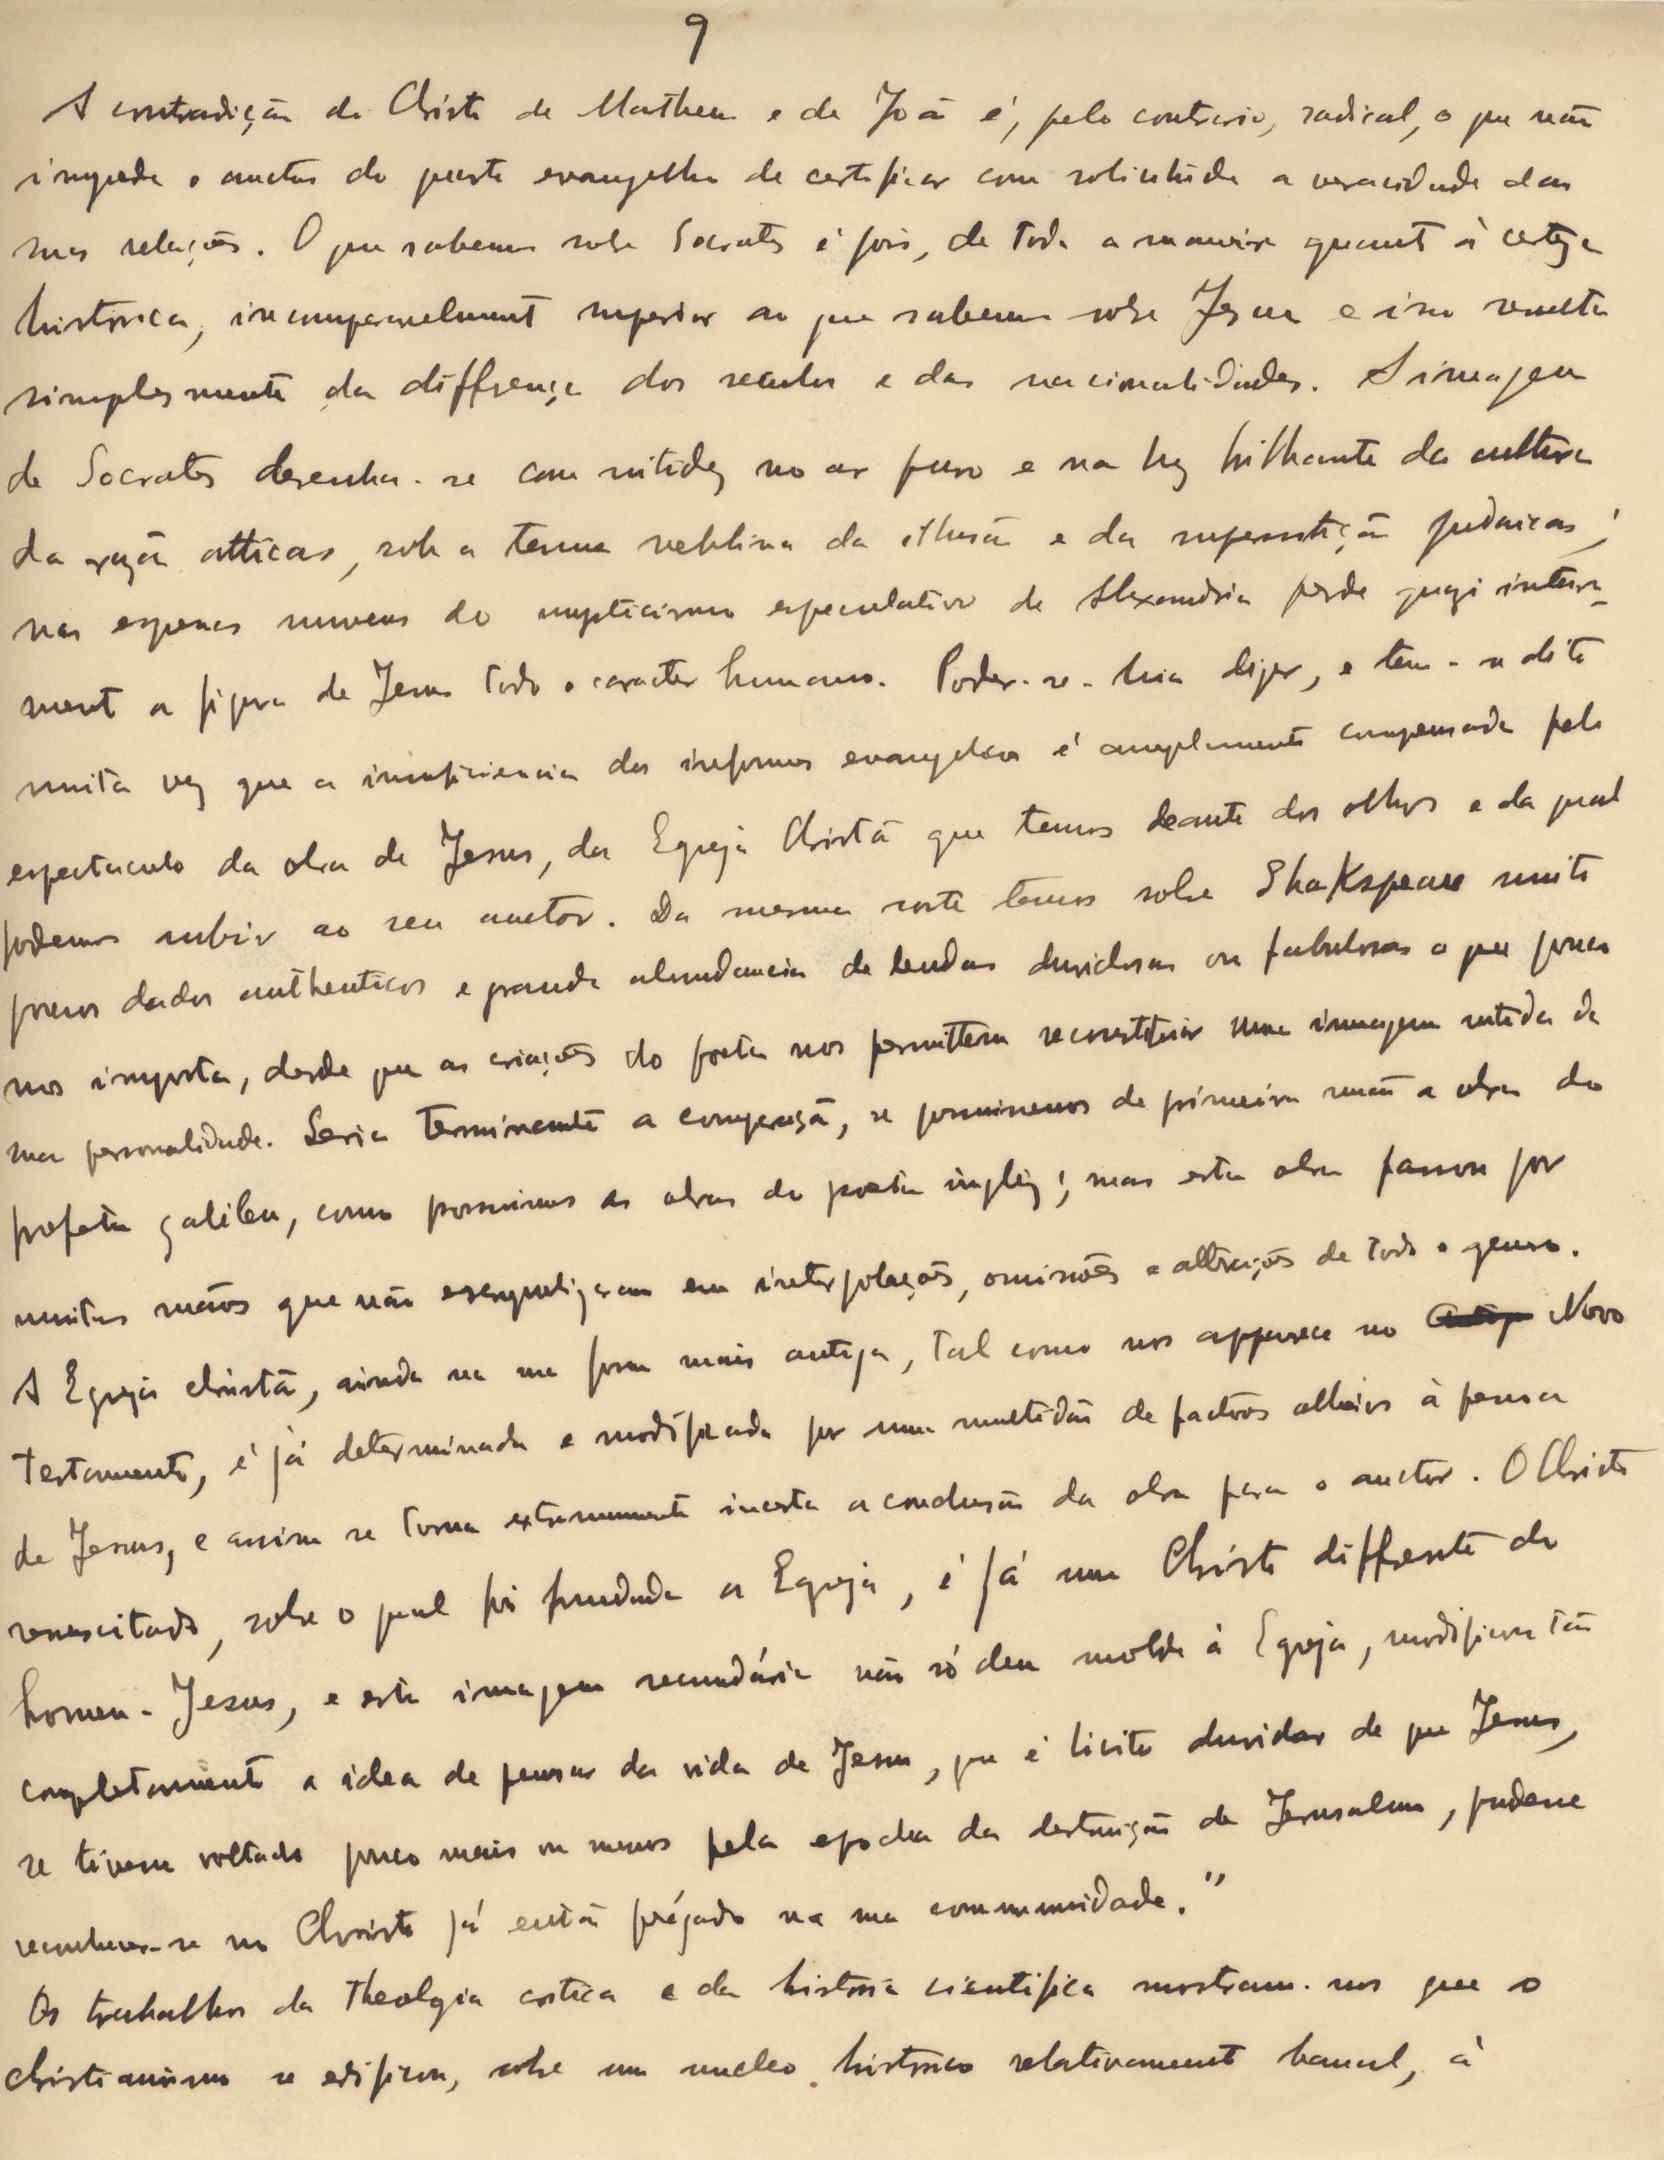 9
A contradição do Christo de Matheus e de João é, pelo contrario, radical, o que não
impede o auctor do quarto evangelho de certificar com solicitude a veracidade das
suas relações. O que sabemos sobre Socrates é pois, de toda a maneira quanto á certeza
historica, incomparavelmente superior ao que sabemos sobre Jesus e isso resulta
simplesmente da differença dos seculos e das nacionalidades. A imagem
de Socrates desenha-se com nitidez no ar puro e na luz brilhante da cultura
da razão atticas, sob a tenue neblina da illusão e da superstição judaicas;
nas espessas nuvens do mysticismo especulativo de Alexandria perde quazi inteira-
mente a figura de Jesus todo o caracter humano. Poder-se-hia dizer, e tem-se dito
muita vez que a insufficiencia dos informes evangelicos é amplamente compensada pelo
espectaculo da obra de Jesus, da Egreja Christã que temos deante dos olhos e da qual
podemos subir ao seu auctor. Da mesma sorte temos sobre Shakspeare muito
poucos dados authenticos e grande abundancia de lendas duvidosas ou fabulosas o que pouco
nos importa, desde que as criações do poeta nos permittem reconstituir uma imagem nitida da
sua personalidade. Seria terminante a comparação, se possuissemos de primeira mão a obra do
profeta galileu, como possuimos as obras do poeta inglez; mas esta obra passou por
muitas mãos que não escrupulizaram em interpolações, omissões e alterações de todo o genero.
A Egreja christã, ainda na sua forma mais antiga, tal como nos apparece no Novo
Testamento, é já determinada e modificada por uma multidão de factores alheios à pessoa
de Jesus, e assim se torna extremamente incerta a conclusão da obra para o auctor. O Christo
resuscitado, sobre o qual foi fundada a Egreja, é já um Christo differente do
homem-Jesus, e esta imagem secundária não só deu molde á Egreja, modificou tão
completamente a idea de pensar da vida de Jesus, que é licito duvidar de que Jesus,
se tivesse voltado pouco mais ou menos pela epocha da destruição de Jerusalem, pudesse
reconhecer-se no Christo já então prégado na sua communidade."
Os trabalhos da Theologia critica e da historia scientifica mostram-nos que o
christianismo se edificou, sobre um nucleo historico relativamente banal, á